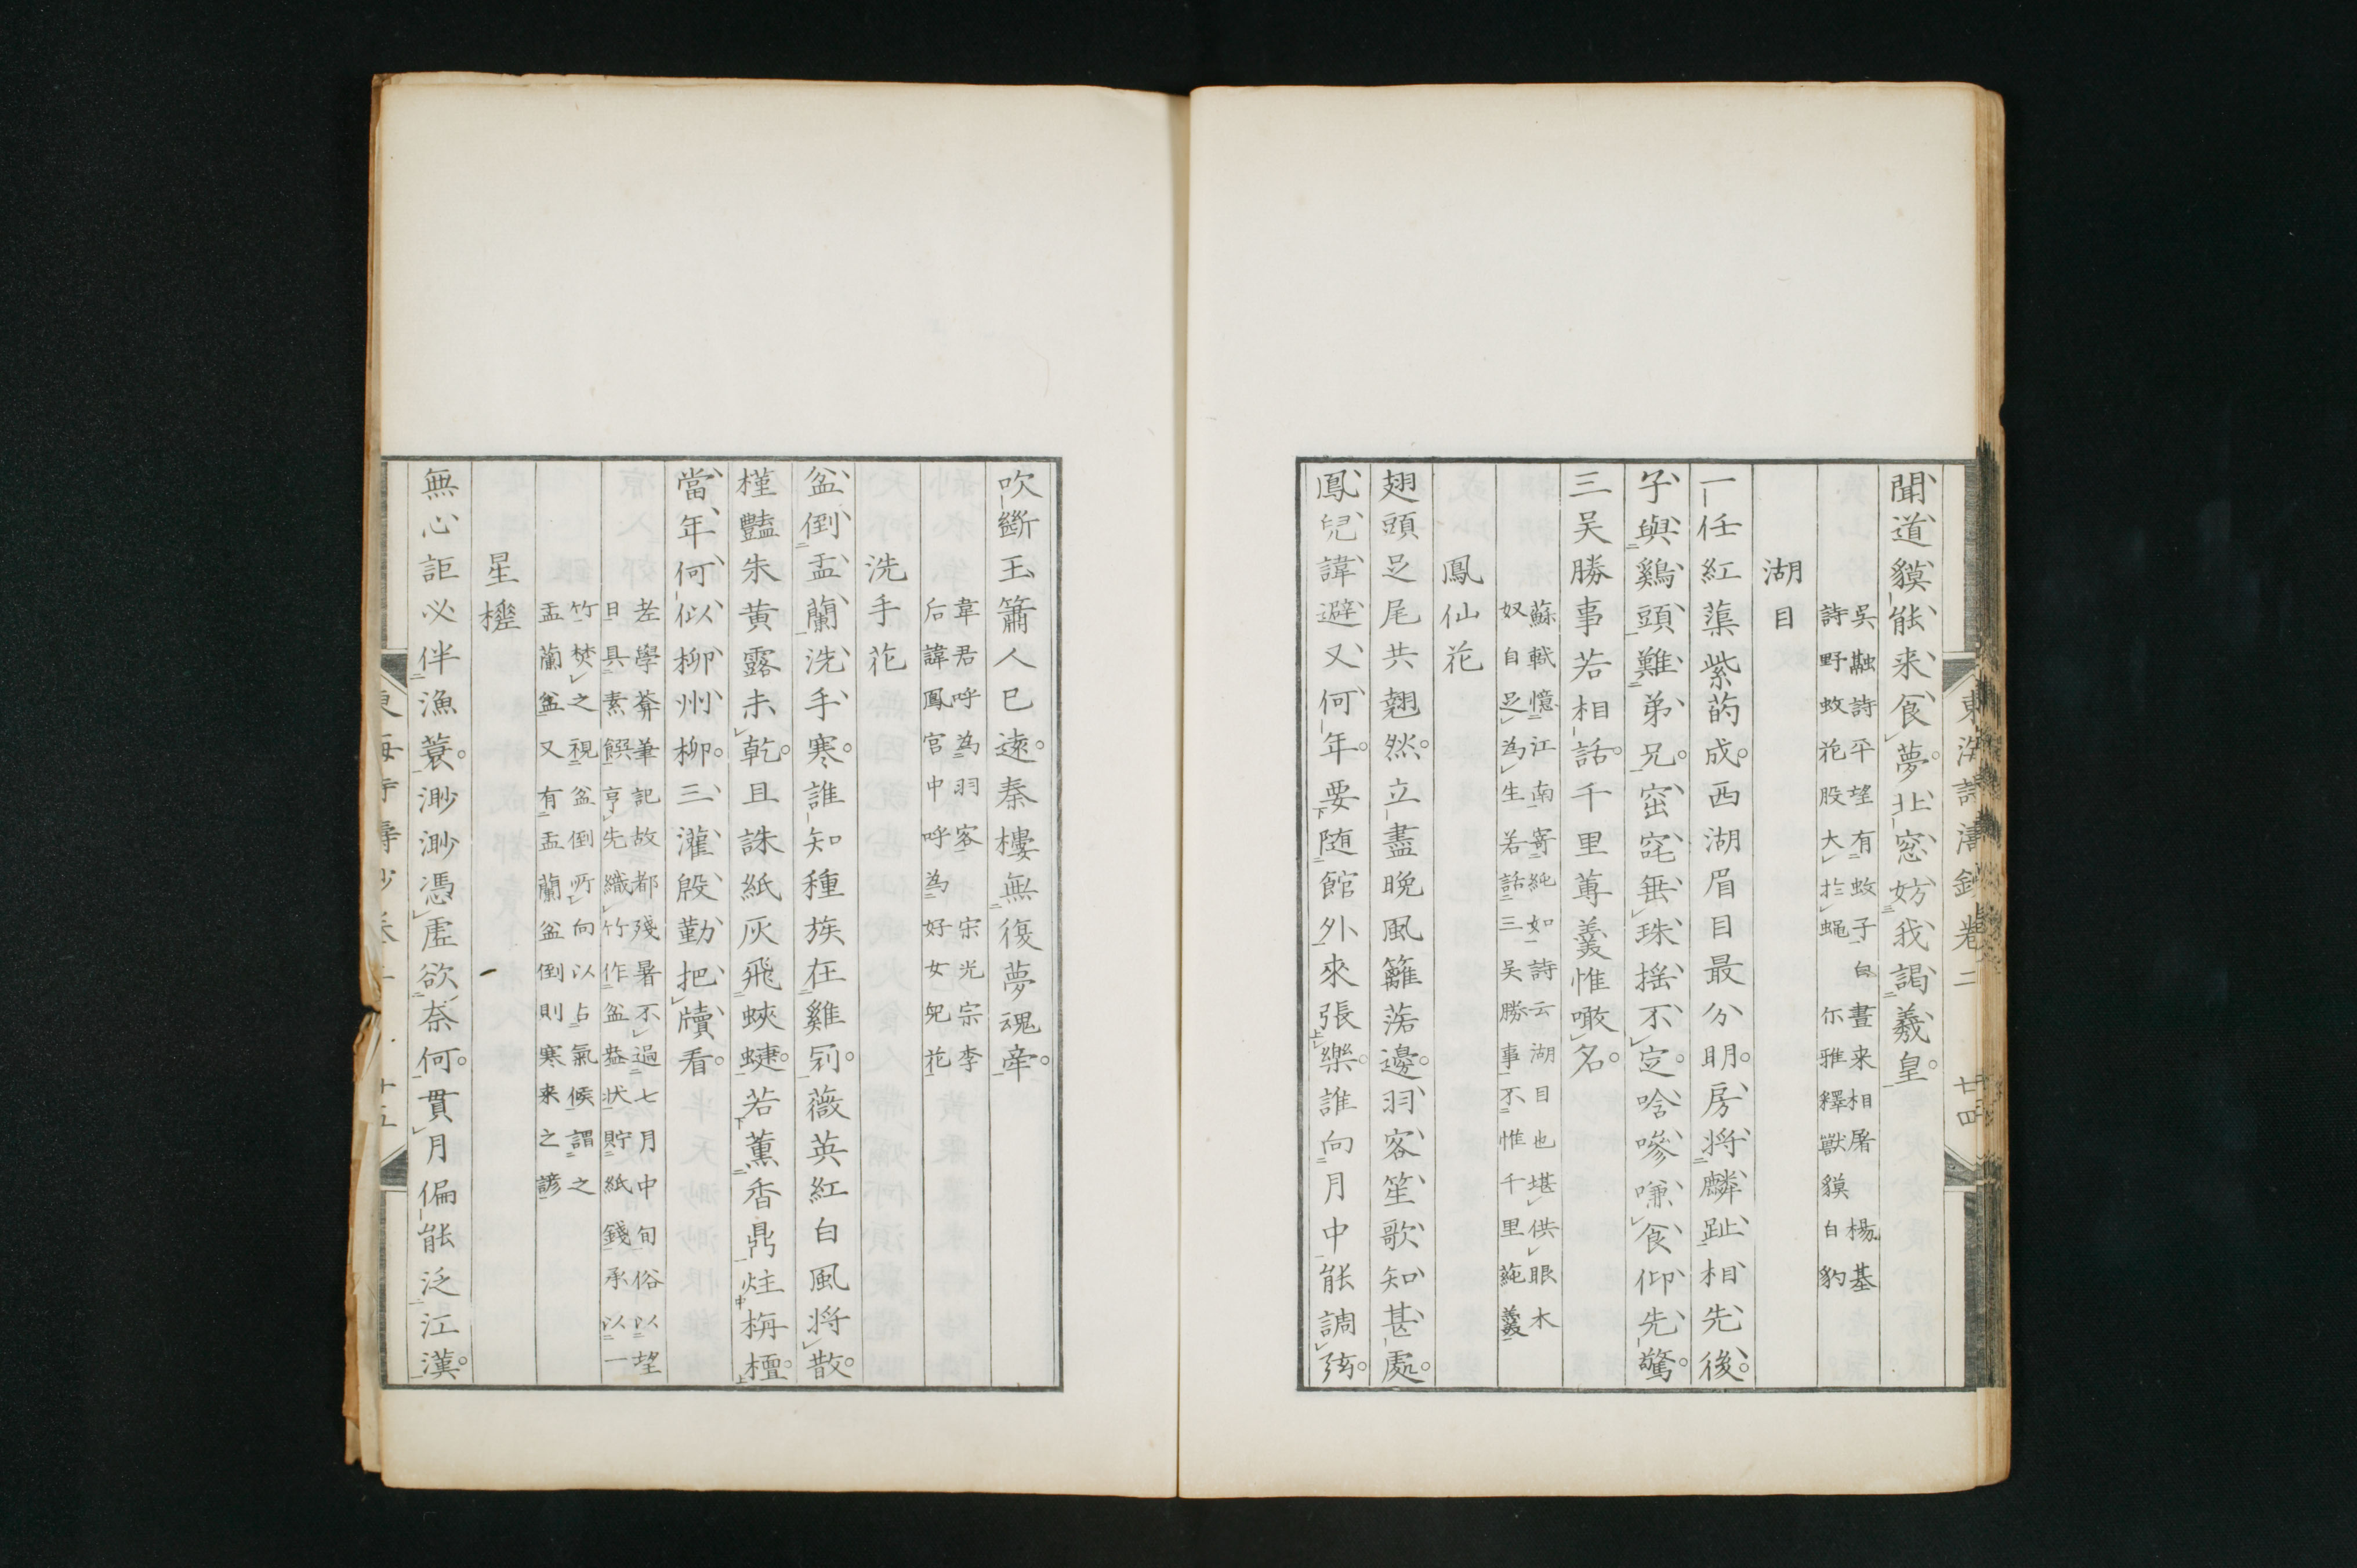 東海詩濤鈔卷二 廿四
聞道貘能来食夢。北窓妨我謁羲皇。
吳融詩平望有蚊子白晝来相屠楊基
詩野蚊花股大於蝇尓雅釋獸貘白豹
湖目
一任紅蕖紫菂成。西湖眉目最分明。房将麟趾相先後。
子與鷄頭難弟兄。窋窊垂珠揺不定。唅嗲嗛食仰先驚。
三吴勝事若相話。千里蓴羹惟噉名。
蘇軾憶江南寄純如詩云湖目也堪供眼木
奴自足為生若話三吴勝事不惟千里蓴羹
鳳仙花
翅頭足尾共翹然。立盡晩風籬落邊。羽客笙歌知甚處。
鳳兒諱避又何年。要随館外來張樂。誰向月中能調弦。
吹斷玉簫人已遠。秦樓無復夢魂牽。
韋君呼為羽客宋光宗李
后諱鳳官中呼為好女兒花
洗手花
盆倒盂蘭洗手寒。誰知種族在雞冠。薇英紅白風将散。
槿豔朱黄露未乾。且誅紙灰飛蛺蝶。若薫香鼎炷栴檀。
當年何似柳州柳。三灌殷勤把牘看。
老學菴筆記故都殘暑不過七月中旬俗以望
日具素饌亨先織竹作盆盎狀貯紙錢承以一
竹焚之視盆倒所向以占氣候謂之
盂蘭盆又有盂蘭盆倒則寒来之諺
星槎
無心詎必伴漁蓑。渺渺憑虚欲奈何。貫月偏能泛江漢。